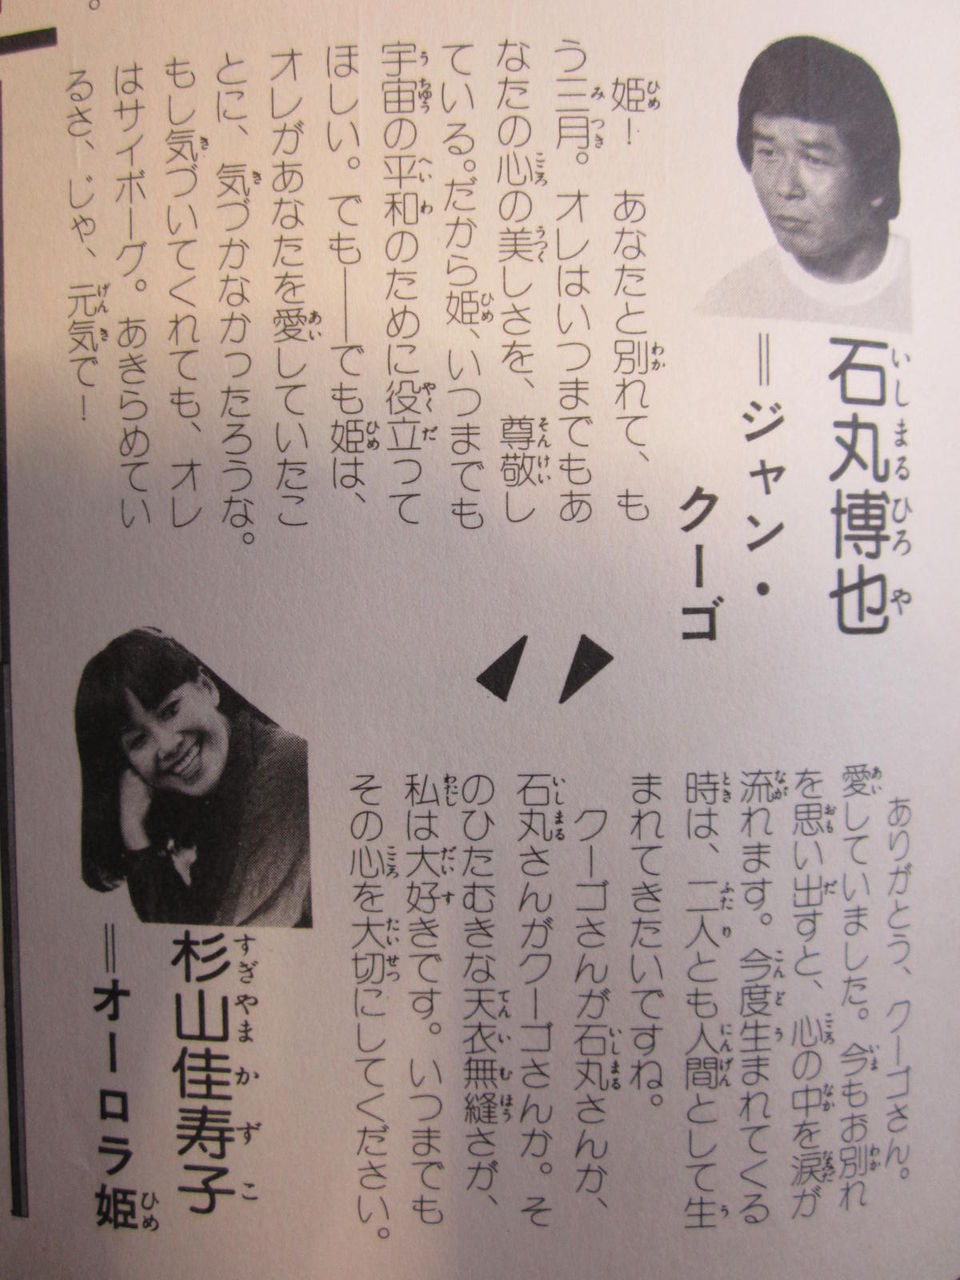 石丸博也
＝ジャン・
クーゴ
姫！　あなたと別れて、も
う三月。オレはいつまでもあ
なたの心の美しさを、尊敬し
ている。だから姫、いつまでも
宇宙の平和のために役立って
ほしい。でも――でも姫は、
オレがあなたを愛していたこ
とに、気づかなかったろうな。
もし気づいてくれても、オレ
はサイボーグ。あきらめてい
るさ、じゃ、元気で！
ありがとう、クーゴさん。
愛していました。今もお別れ
を思い出すと、心の中を涙が
流れます。今度生まれてくる
時は、二人とも人間として生
まれてきたいですね。
クーゴさんが石丸さんか、
石丸さんがクーゴさんか。そ
のひたむきな天衣無縫さが、
私は大好きです。いつまでも
その心を大切にしてください。
杉山佳寿子
＝オーロラ姫